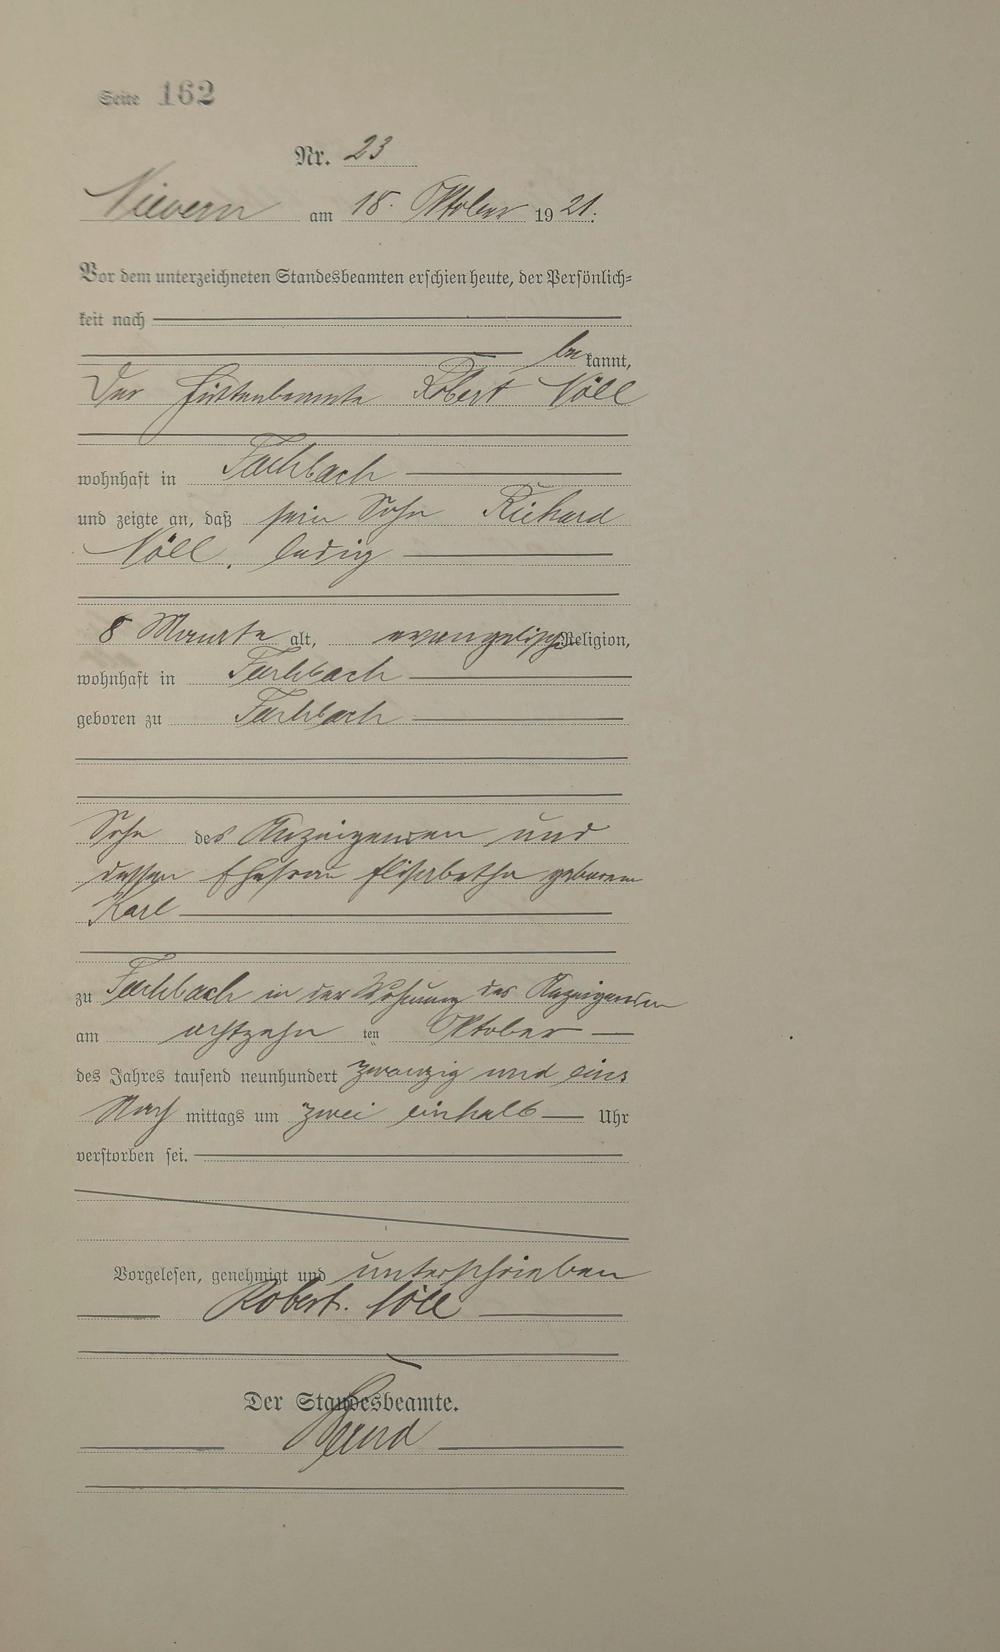 Seite 162
Nr. 23
Nievern am 18. Oktober 1921.
Vor dem unterzeichneten Standesbeamten erschien heute, der Persönlich-
keit nach
bekannt,
Der Hüttenbeamte Robert Nöll
wohnhaft in Fachbach
und zeigte an, daß sein Sohn Richard
Nöll, ledig
8 Monate alt, evangelischer Religion,
wohnhaft in Fachbach
geboren zu Fachbach
Sohn des Anzeigenden und
dessen Ehefrau Elisabetha geborene
Karl
zu Fachbach in der Wohnung des Anzeigenden
am achtzehn ten Oktober
des Jahres tausend neunhundert zwanzig und eins
Nach mittags um zwei einhalb Uhr
verstorben sei.
Vorgelesen, genehmigt und unterschrieben
Robert Nöll
Der Standesbeamte.